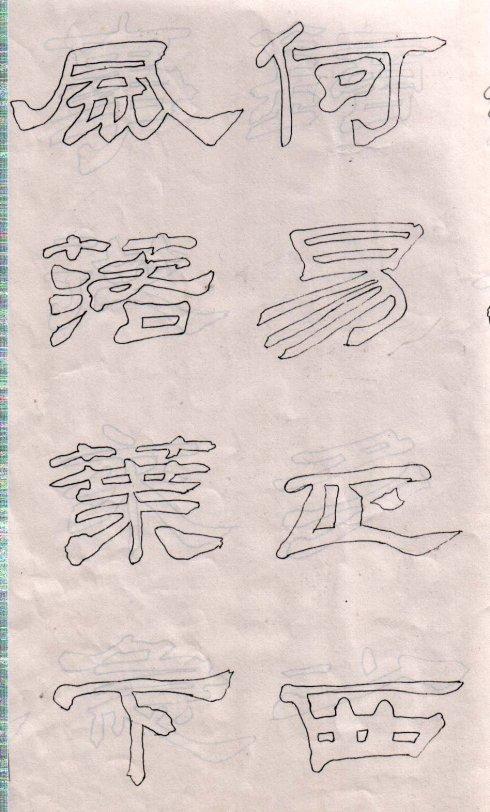 何易正西
風落葉下